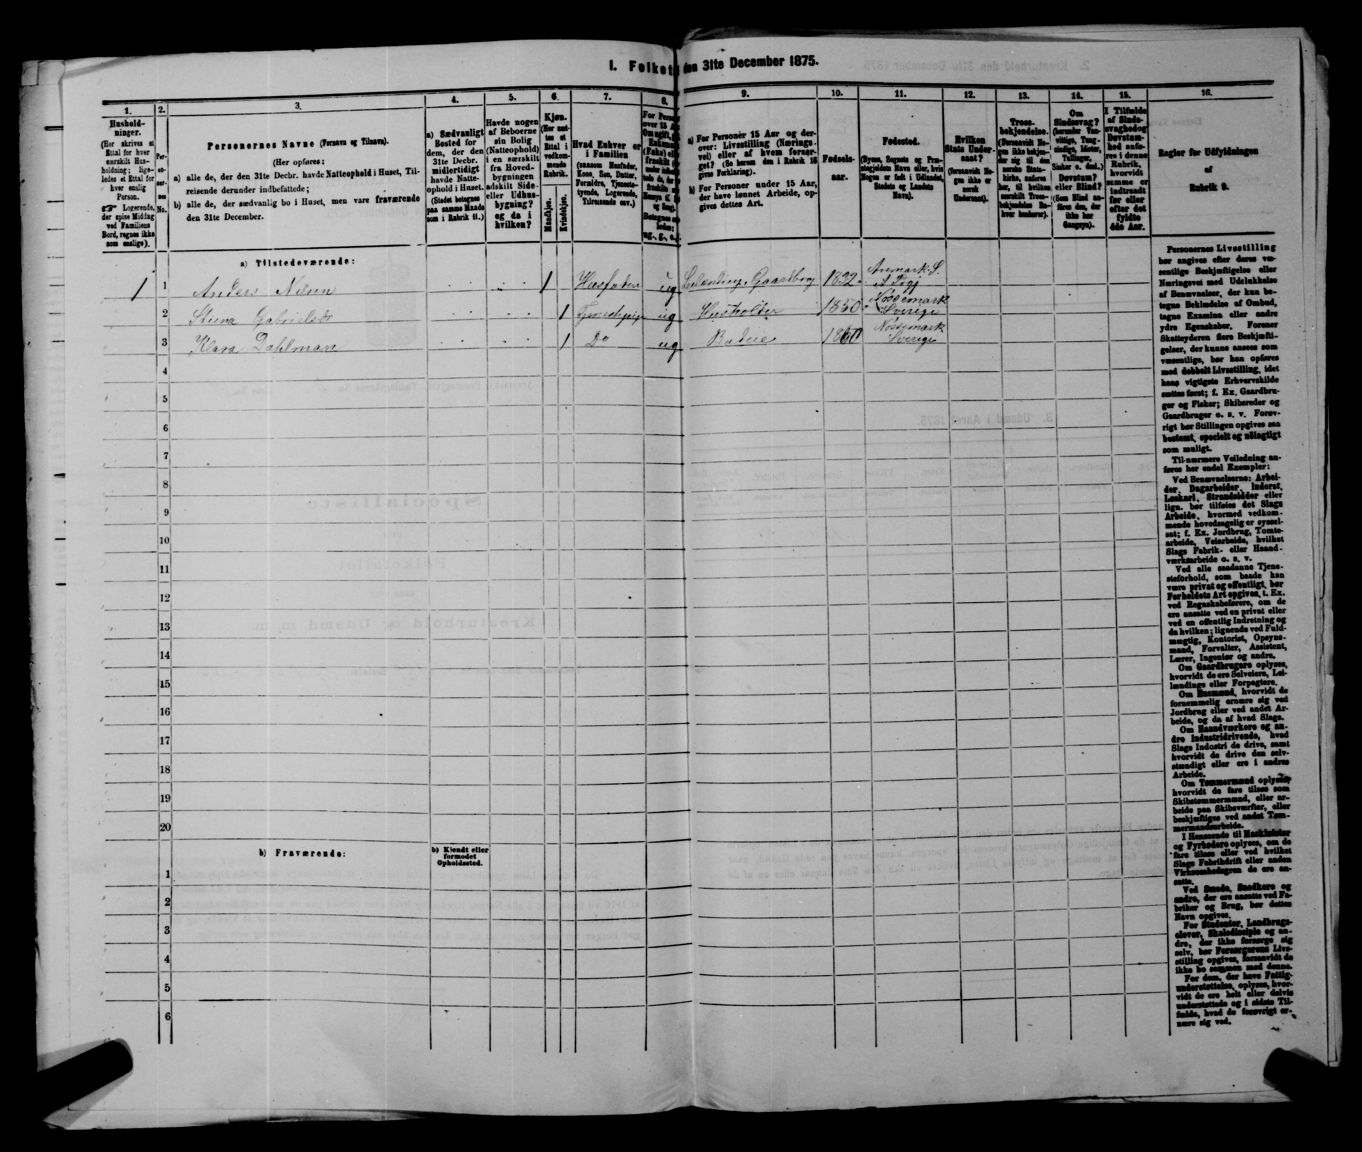 I. Folket
den 31te December 1875.
1.
2.
3.
4.
5.
6.
7.
8.
9.
10.
11.
12.
13.
14.
15.
16.
Hushold-
ninger.
(Her skrives et
Ettal for hver
særskilt Hus-
holdning; lige-
ledes et Ettal for
hver enslig
Person.
☞ Logerende,
der spise Middag
ved Familiens
Bord, regnes ikke
som enslige).
Personernes Navne (Fornavn og Tilnavn).
(Her opføres:
a) alle de, der den 31te Decbr. havde Natteophold i Huset, Til-
reisende derunder indbefattede;
b) alle de, der sædvanlig bo i Huset, men vare fraværende
den 31te December.
a) Sædvanligt
Bosted for
dem, der den
31te Decbr.
midlertidigt
havde Natte-
ophold i Huset.
(Stedet betegnes
paa samme Maade
som i Rubrik 11.)
Havde nogen
af Beboerne
sin Bolig
(Natteophold)
i en særskilt
fra Hoved-
bygningen
adskilt Side-
eller Udhus-
bygning?
og da i
hvilken?
Kjøn.
(Her sæt-
tes et
Ettal i
vedkom-
mende
Rubrik.
Mandkjøn.
Kvindekjøn.
Hvad Enhver er
i Familien
(saasom Husfader,
Kone, Søn, Datter,
Forældre, Tjeneste-
tyende, Logerende,
Tilreisende osv.)
a) For Personer 15 Aar og der-
over: Livsstilling (Nærings-
vei) eller af hvem forsør-
get? (Se herom den i Rubrik 16
givne Forklaring).
b) For Personer under 15 Aar,
der have lønnet Arbeide, op-
gives dettes Art.
Fødsels-
aar.
Fødested.
(Byens, Sognets og Præ-
stegjeldets Navn eller, hvis
Nogen er født i Udlandet,
Stedets og Landets
Navn).
Hvilken
Stats Under-
saat?
(forsaavidt No-
gen ikke er
norsk
Undersaat).
Troes-
bekjendelse.
(forsaavidt No-
gen ikke bekjen-
der sig til den
norske Stats-
kirke, anføres
her, til hvilken
Troes-
bekjendelse No-
gen henhører).
Om
Sindssvag?
Døvstum?
eller Blind?
(Som Blind an-
føres den, der
ikke har
Gangsyn).
I Tilfælde
af Sinds-
svaghed og
Døvstum-
hed anfø-
res i denne
Rubrik,
hvorvidt
samme er
indtraadt
før eller
efter det
fyldte
4de Aar.
Regler for Udfyldningen
af
Rubrik 9.
a) Tilstedeværende:
1 1 Anders Nilsen 1 Husfader ug Selveiende Gaardbrug 1832
2 Stina Gabrielsdr 1 ug Husholder 1850 Nössemark Sverige
3 Klara Dahlman 1 Do ug Budeie Nössemark Sverige
4
5
6
7
8
9
10
11
12
13
14
15
16
17
18
19
20
b) Fraværende:
b) Kjendt eller
formodet
Opholdssted.
1
2
3
4
5
6
Personernes Livsstilling
bør angives efter deres væ-
sentlige Beskjæftigelse eller
Næringsvei med Udelukkelse
af Benævnelser, der kun be-
tegne Beklædelse af Ombud,
tagne Examina eller andre
ydre Egenskaber. Forener
Skatteyderen flere Beskjæfti-
gelser, der kunne ansees som
væsentlige, bør han opføres
med dobbelt Livsstilling, idet
hans vigtigste Erhvervskilde
sættes først; f. Ex. Gaardbru-
ger og Fisker; Skibsreder og
Gaardbruger o. s. v. Forøv-
rigt bør Stillingen opgives saa
bestemt, specielt og nøiagtigt
som muligt.
Til nærmere Veiledning an-
føres her endel Exempler:
Ved Benævnelserne: Arbei-
der, Dagarbeider, Inderst,
Løskarl, Strandsidder eller
lign. bør tilføies det Slags
Arbeide, hvormed vedkom-
mende hovedsagelig er syssel-
sat; f. Ex. Jordbrug, Tomte-
arbeide, Veiarbeide, hvilket
Slags Fabrik- eller Haand-
værksarbeide o. s. v.
Ved alle saadanne Tjene-
steforhold, som baade kan
være privat og offentligt, bør
Forholdets Art opgives, t. Ex.
ved Regnskabsførere, om de
ere ansatte ved en privat eller
ved en offentlig Indretning og
da hvilken; lignende ved Fuld-
mægtig, Kontorist, Opsyns-
mand, Forvalter, Assistent,
Lærer, Ingeniør og andre.
Om Gaardbrugere oplyses,
hvorvidt de ere Selveiere, Lei-
lændinge eller Forpagtere.
Om Husmænd, hvorvidt de
fornemmelig ernære sig ved
Jordbrug eller ved andet Ar-
beide, og da af hvad Slags.
Om Haandværkere og an-
dre Industridrivende, hvad
Slags Industri de drive, samt
hvorvidt de drive den selv-
stændigt eller ere i andres
Arbeide.
Om Tømmermænd oplyses,
hvorvidt de fare tilsøs som
Skibstømmermænd, eller ar-
beide paa Skibsværfter, eller
beskjæftiges ved andet Tøm-
mermandsarbeide.
I Henseende til Maskinister
og Fyrbødere oplyses, om de
fare tilsøs eller ved hvilket
Slags Fabrikdrift eller anden
Virksomhedsgren de ere an-
satte.
Ved Smede, Snedkere og
andre, der ere ansatte ved Fa-
briker og Brug, bør dettes
Navn opgives.
For Studenter, Landbrugs-
elever, Skoledisciple og an-
dre, der ikke forsørge sig
selv, bør Forsørgerens Livs-
stilling opgives, forsaavidt de
ikke bo sammen med denne.
For dem, der have Fattig-
understøttelse, oplyses, hvor-
vidt de ere helt eller delvis
understøttede og i sidste Til-
fælde, hvad de forøvrigt er-
nære sig ved.